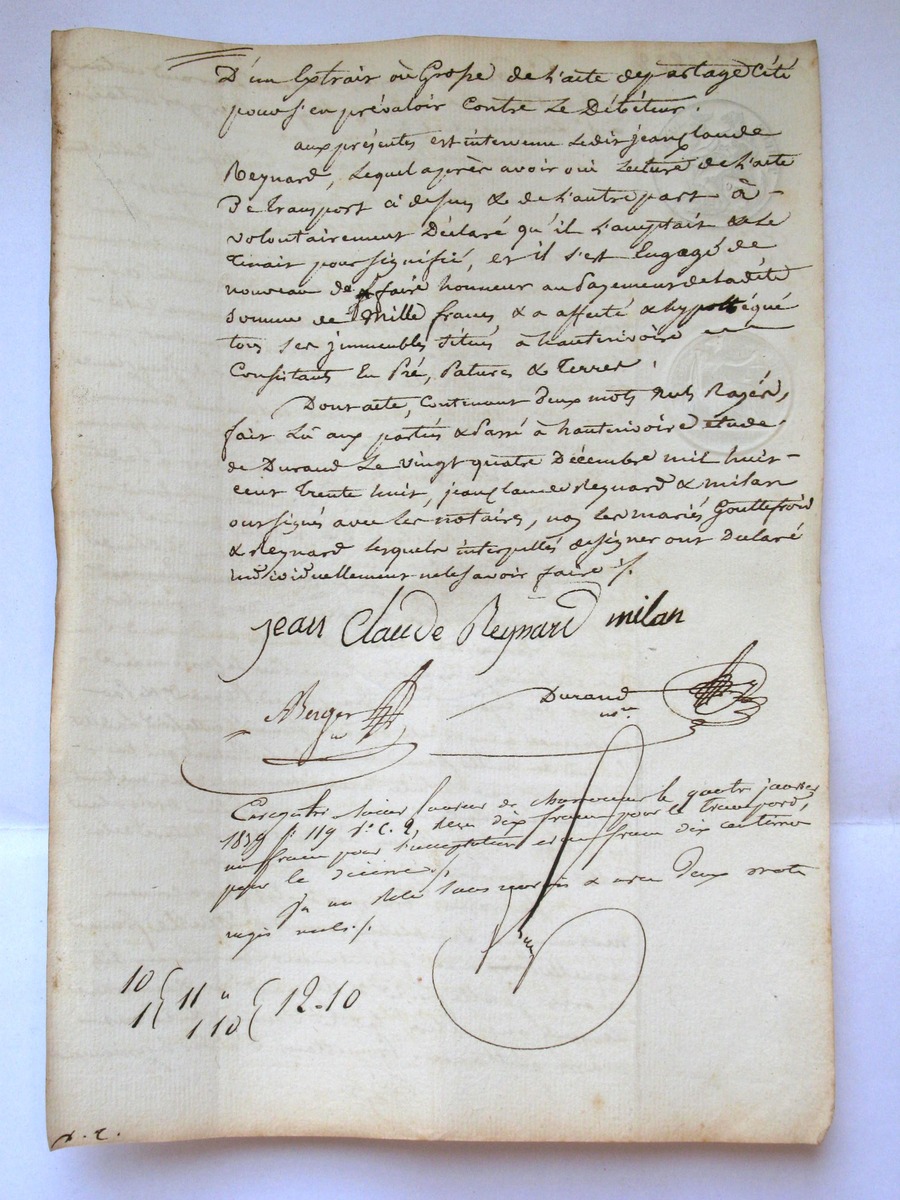 D'un Extrait où Grosse de l'acte de partage Cité
pour s'en prévaloir Contre Le Débiteur.
aux présentes est intervenu Ledit jean Claude
Reynard, Lequel après avoir oui Lecture de L'acte
De Transport ci dessus & de L'autre part à
volontairement Déclaré qu'il L'acceptait & Le
Tenait pour signifié, et il s'est Engagé de
nouveau de faire honneur au Payement de ladite
Somme de Mille francs & a affecté & hypothéqué
tous ses jmmeubles situés à hauterivoire
Consistants En Pré, Patures & Terres.
Dont acte, Contenant deux mots Nuls Rayés,
fait Lû aux parties & Passé à hauterivoire étude
de Durand Le vingt quatre Décembre mil huit
cent Trente huit, jean Claude Reynard & milan
ont signés avec les notaires, non les mariés Gouttefroid
& Reynard Lesquels interpellés de signer ont Déclaré
individuellement ne le savoir faire ./.
jean Claude Reynard milan
Berger
Durand
nre
Enregistré à Saint Laurent de Chamousset le quatre janvier
1839 f. 119 C. 2, Reçu dix francs pour le transport,
un franc pour l'acceptation et un franc dix centimes
pour le décime ./.
deux mots
rayés nuls ./.
10 11 " 12-10
1 1 10